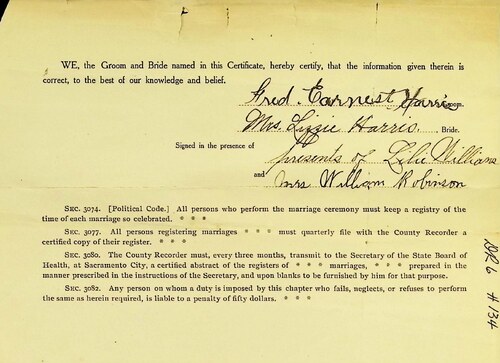 WE, the Groom and Bride named in this Certificate, hereby certify, that the information given therein is
correct, to the best of our knowledge and belief.
Fred. Earnest Harris Groom.
Mrs. Lizzie Harris. Bride.
Signed in the presence of
presents of Lilu Williams
and Mrs William Robinson
SEC. 3074. [Political Code.] All persons who perform the marriage ceremony must keep a registry of the
time of each marriage so celebrated. * * *
SEC. 3077. All persons registering marriages * * * must quarterly file with the County Recorder
a certified copy of their register. * * *
SEC. 3080. The County Recorder must, every three months, transmit to the Secretary of the State Board of
Health, at Sacramento City, a certified abstract of the registers of * * * marriages, * * * prepared in the
manner prescribed in the instructions of the Secretary, and upon blanks to be furnished by him for that purpose.
SEC. 3082. Any person on whom a duty is imposed by this chapter who fails, neglects, or refuses to perform
the same as herein required, is liable to a penalty of fifty dollars. * * *
6 #134